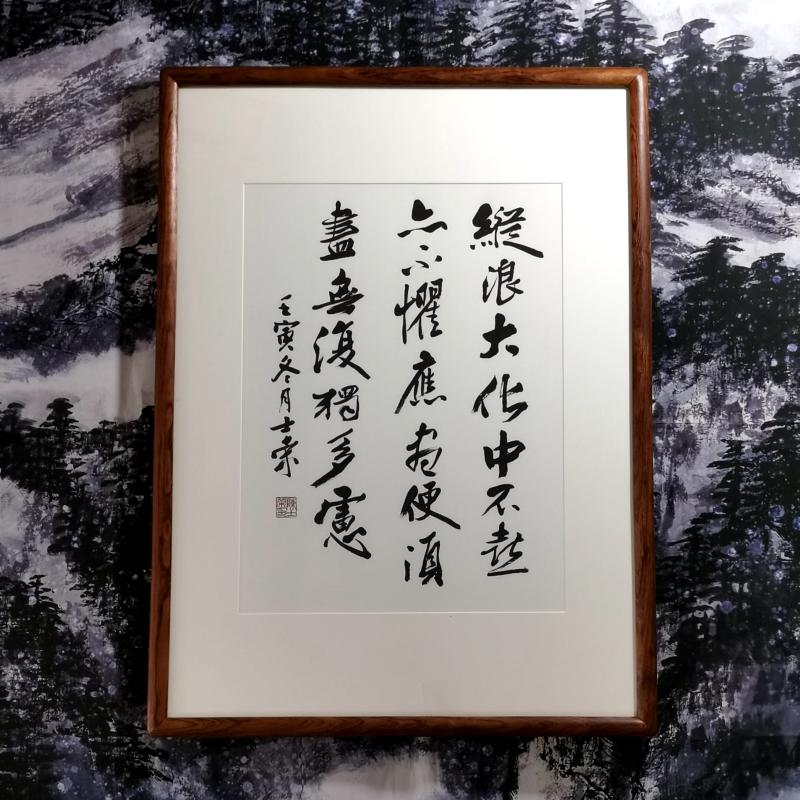 縱浪大化中不喜
亦不懼應盡便須
盡無復獨多慮
壬寅冬月士榮